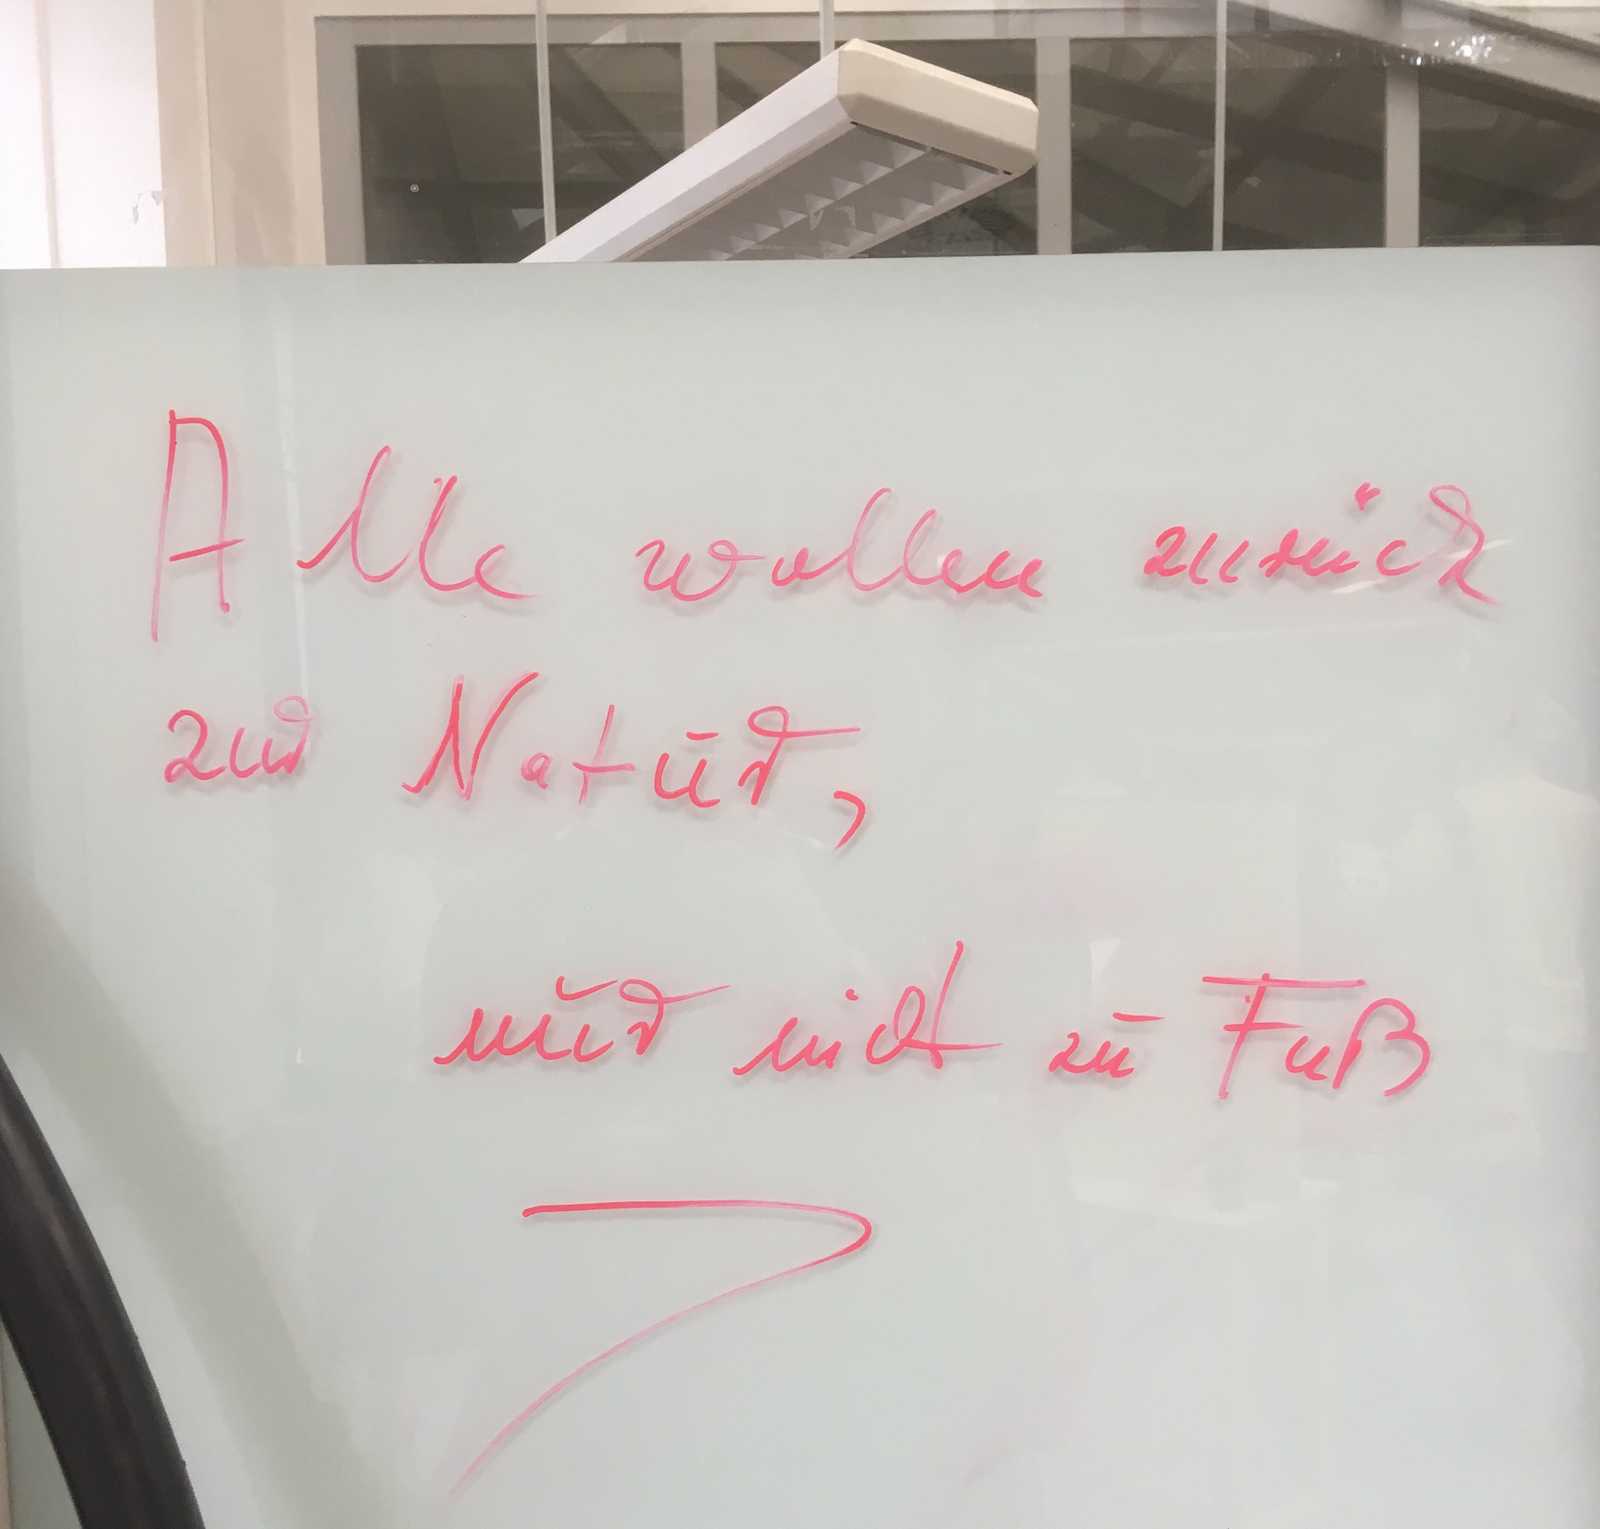 Alle wollen zurück
zur Natur,
nur nicht zu Fuß